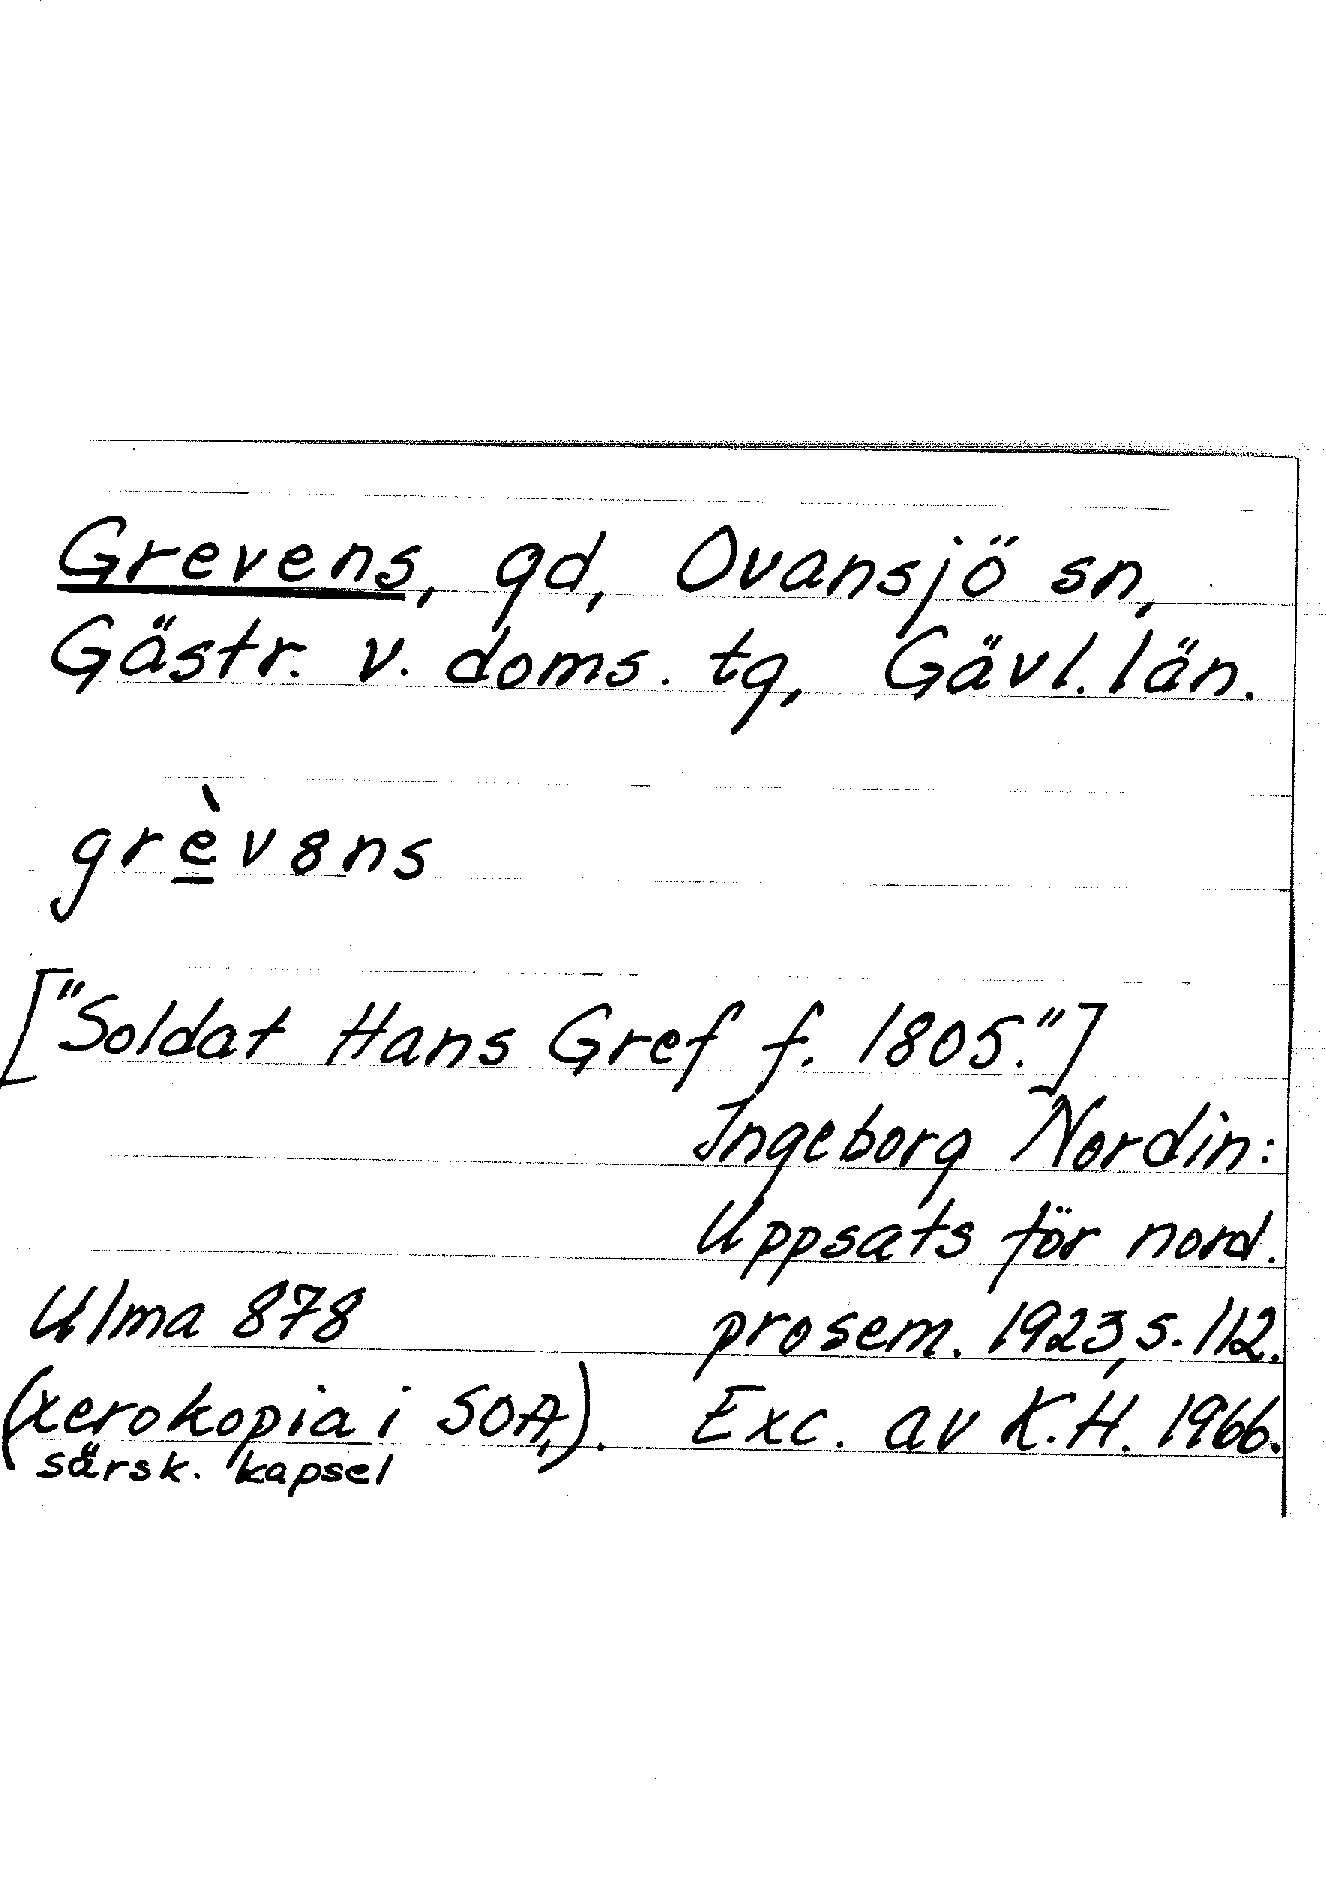 Grevens, gd, Ovansjö sn,
Gästr. v. doms. tg, Gävl. län.
grèv8ns
["Soldat Hans Gref f. 1805."]
Ingeborg Nordin:
Uppsats för nord.
Ulma 878 prosem. 1923, s. 112.
(xerokopia i SOA,). Exc. av K.H. 1966.
särsk. kapsel